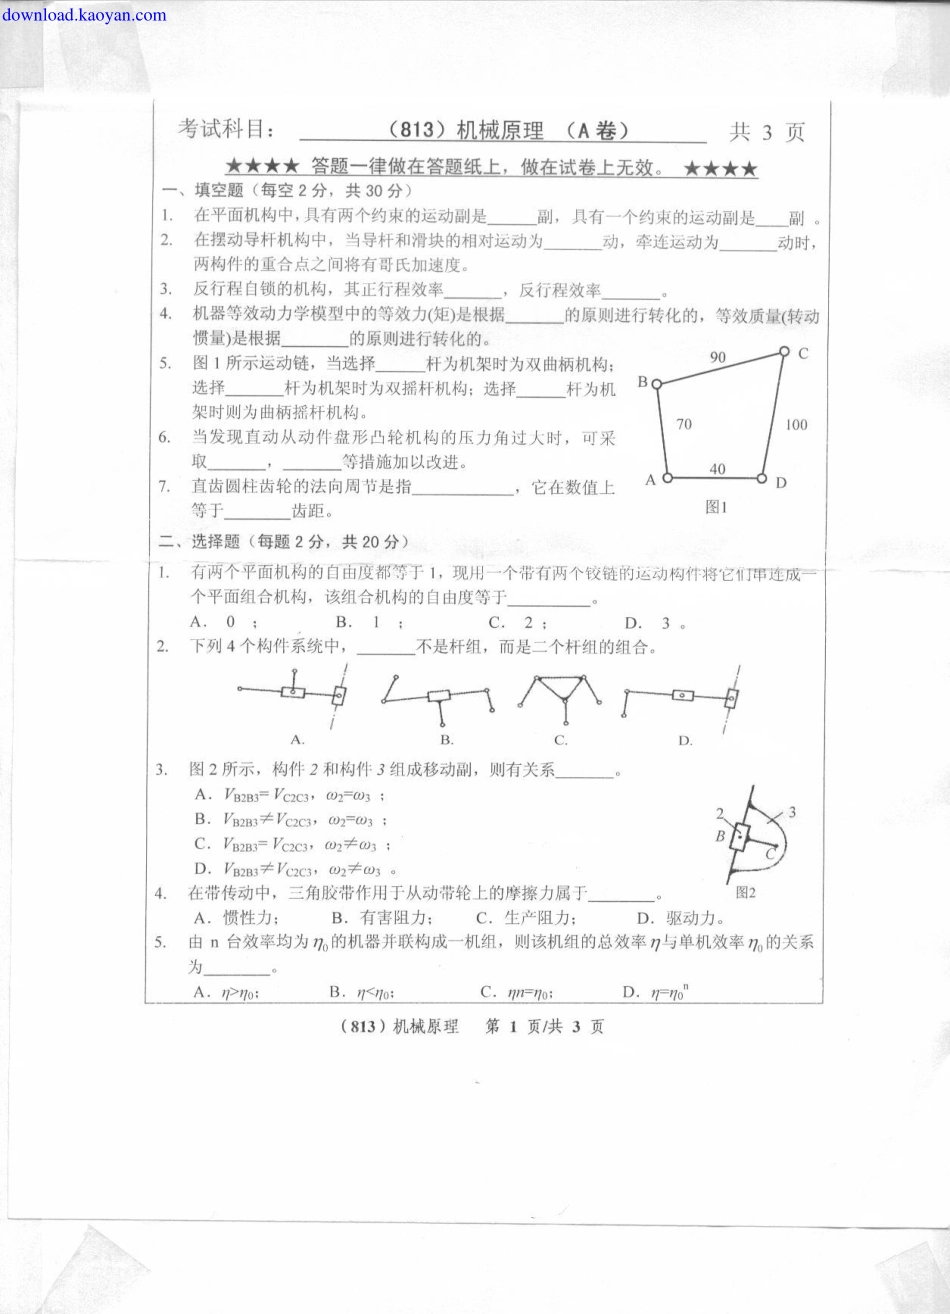 download.kaoyan.com
考试科目： （813）机械原理 （A 卷） 共 3 页
★★★★ 答题一律做在答题纸上，做在试卷上无效。 ★★★★
一、填空题（每空 2 分，共 30 分）
1. 在平面机构中，具有两个约束的运动副是_____副，具有一个约束的运动副是____副 。
2. 在摆动导杆机构中，当导杆和滑块的相对运动为______动，牵连运动为______动时，
两构件的重合点之间将有哥氏加速度。
3. 反行程自锁的机构，其正行程效率______，反行程效率______。
4. 机器等效动力学模型中的等效力(矩)是根据______的原则进行转化的，等效质量(转动
惯量)是根据_______的原则进行转化的。
5. 图 1 所示运动链，当选择_____杆为机架时为双曲柄机构；
选择______杆为机架时为双摇杆机构；选择_____杆为机
架时则为曲柄摇杆机构。
6. 当发现直动从动件盘形凸轮机构的压力角过大时，可采
取______，______等措施加以改进。
7. 直齿圆柱齿轮的法向周节是指__________，它在数值上
等于_______齿距。
90
C
B
70
100
A
40
D
图1
二、选择题（每题 2 分，共 20 分）
1. 有两个平面机构的自由度都等于 1，现用一个带有两个铰链的运动构件将它们串连成一
个平面组合机构，该组合机构的自由度等于________。
A. 0 ； B. 1 ； C. 2 ； D. 3 。
2. 下列 4 个构件系统中，______不是杆组，而是二个杆组的组合。
A. B. C. D.
3. 图 2 所示，构件 2 和构件 3 组成移动副，则有关系______。
A. VB2B3= VC2C3，ω2=ω3 ；
B. VB2B3≠VC2C3，ω2=ω3 ；
C. VB2B3= VC2C3，ω2≠ω3 ；
D. VB2B3≠VC2C3，ω2≠ω3 。
2
3
B
C
图2
4. 在带传动中，三角胶带作用于从动带轮上的摩擦力属于_______。
A. 惯性力； B. 有害阻力； C. 生产阻力； D. 驱动力。
5. 由 n 台效率均为 η0的机器并联构成一机组，则该机组的总效率 η与单机效率 η0的关系
为_______。
A. η>η0； B. η<η0； C. ηn=η0； D. η=η0ⁿ
（813）机械原理 第 1 页/共 3 页